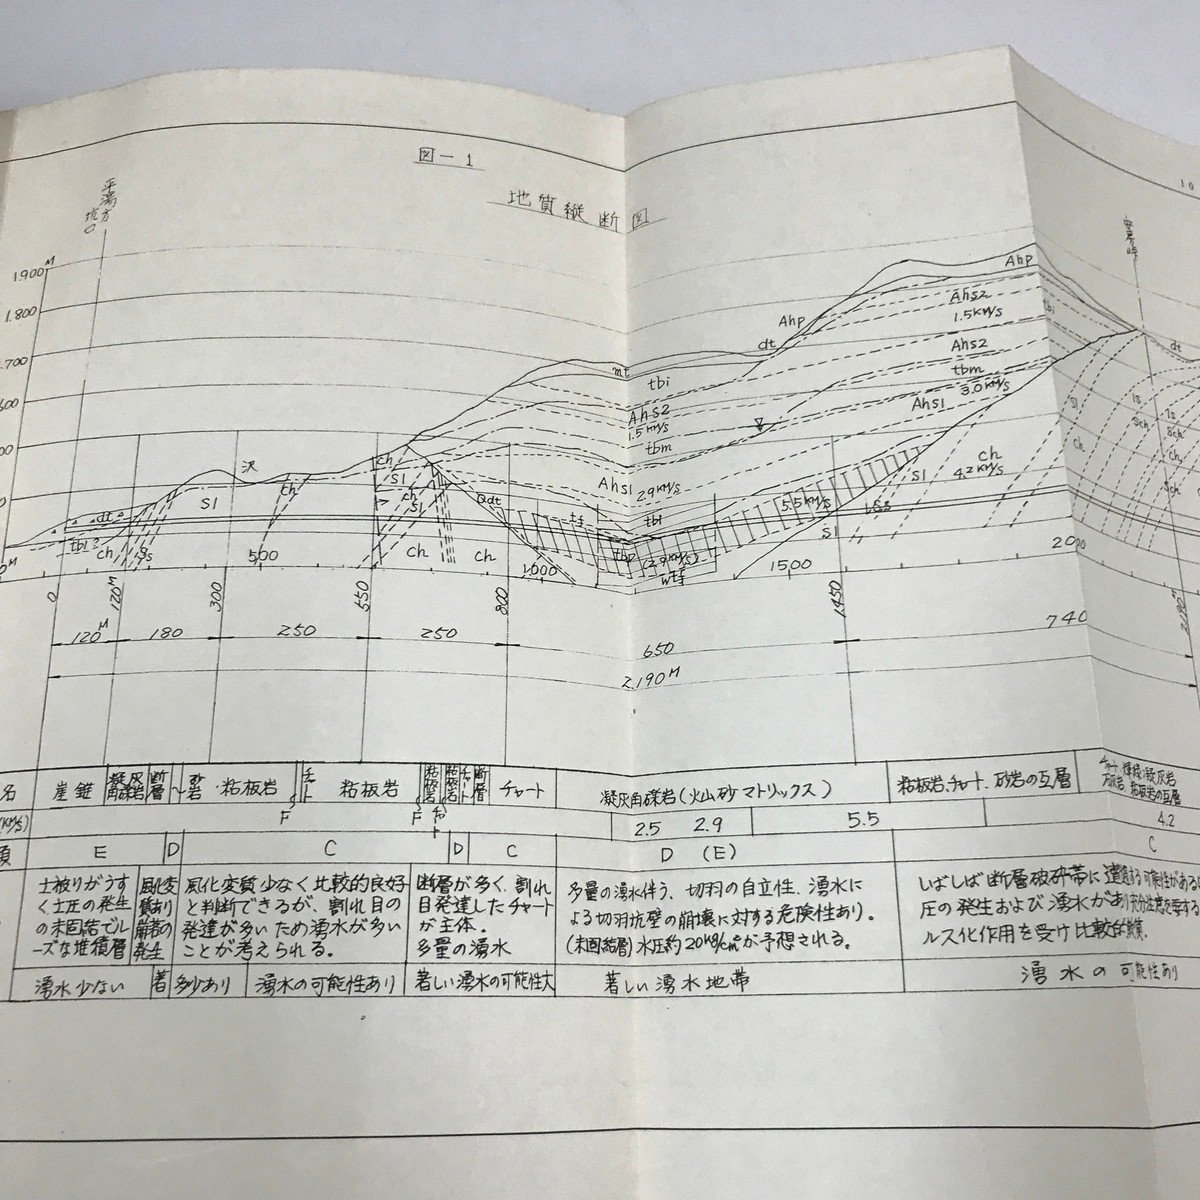 図-1
10
地質縦断図
平湯方
坑口
安房峠
1.900M
1.800
.700
600
Ahp
Ahs2
1.5KM/S
tbi
Ahp
dt
Ahs2
tbm
3.0KM/S
Ahs1
mt
tbi
Ahs2
1.5KM/S
tbm
Ahs1
2.9KM/S
dt
ls
Sch
ch
沢
ch
Sl
ch
Sl
ch
Sl
dt
tbl?
ch
Ss
ch
ch
tf
tbl
tbp
(2.9KM/S)
wtf
5.5KM/S
Sl
ch
4.2KM/S
500
1000
1500
2000
0
120M
300
550
800
1.450
2.190M
120M
180
250
250
650
740
2.190M
名
崖錐
凝灰角礫岩
断層
粘板岩
チャート
粘板岩
粘板岩
断層
チャート
凝灰角礫岩(火山砂マトリックス)
粘板岩、チャート、砂岩の互層
F
F
(KM/S)
2.5
2.9
5.5
4.2
E
D
C
D
C
D (E)
C
土被りがうす
く土圧の発生
の未固結でル
ーズな堆積層
風化変
質あり
崩落の
発生
風化変質少なく比較的良好
と判断できるが、割れ目の
発達が多いため湧水が多い
ことが考えられる。
断層が多く、割れ
目発達したチャート
が主体。
多量の湧水
多量の湧水伴う、切羽の自立性、湧水に
よる切羽坑壁の崩壊に対する危険性あり。
(未固結層)水圧約20kg/cm²が予想される。
しばしば断層破砕帯に遭遇する可能性がある
圧の発生および湧水があり充分注意を要する
ルス化作用を受け比較的
湧水少ない
著
多少あり
湧水の可能性あり
著しい湧水の可能性大
著しい湧水地帯
湧水の可能性あり